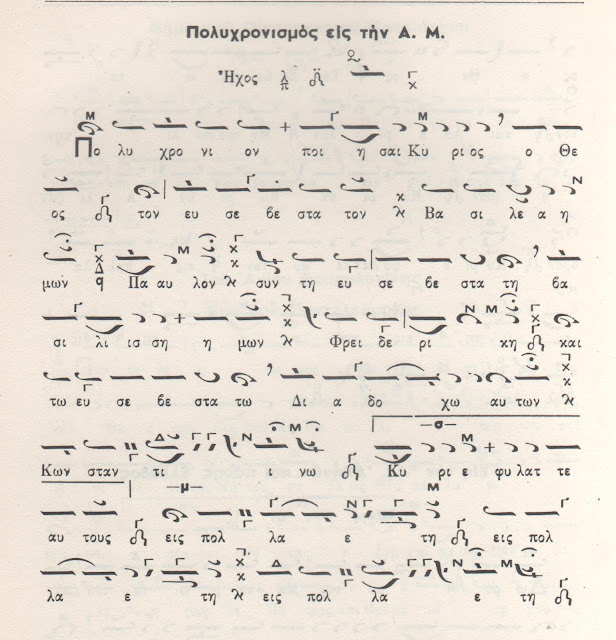 Πολυχρονισμός εἰς τήν Α. Μ.
Ἦχος λ π
Πο λυ χρο νι ον ποι η σαι Κυ ρι ος ο Θε
ος τον ευ σε βε στα τον Βα σι λε α η
μών Πα αυ λον συν τη ευ σε βε στα τη βα
σι λι ισ ση η μων Φρει δε ρι κη και
τω ευ σε βε στα τω Δι α δο χω αυ των
Κων σταν τι ι νω Κυ ρι ε φυ λατ τε
αυ τους εις πολ λα ε τη εις πολ
λα ε τη εις πολ λα ε τη